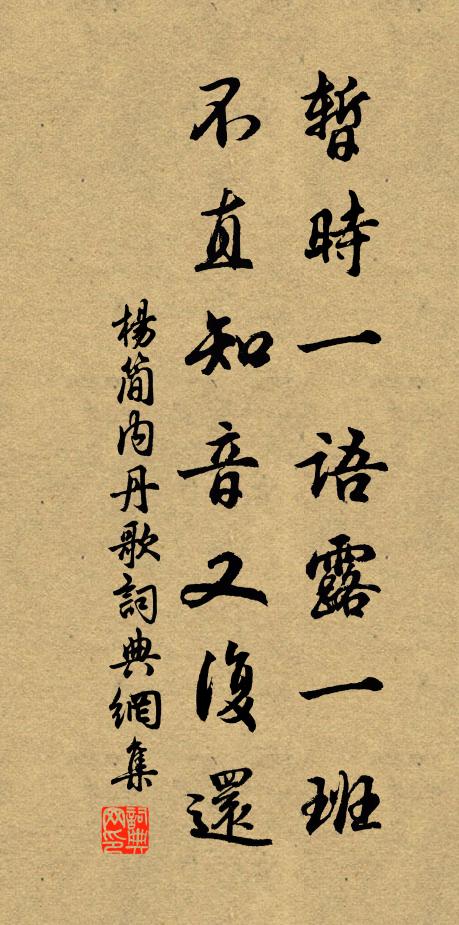 暫時一語露一班
不直知音又復還
楊簡内丹歌詞典網集
詞典網印